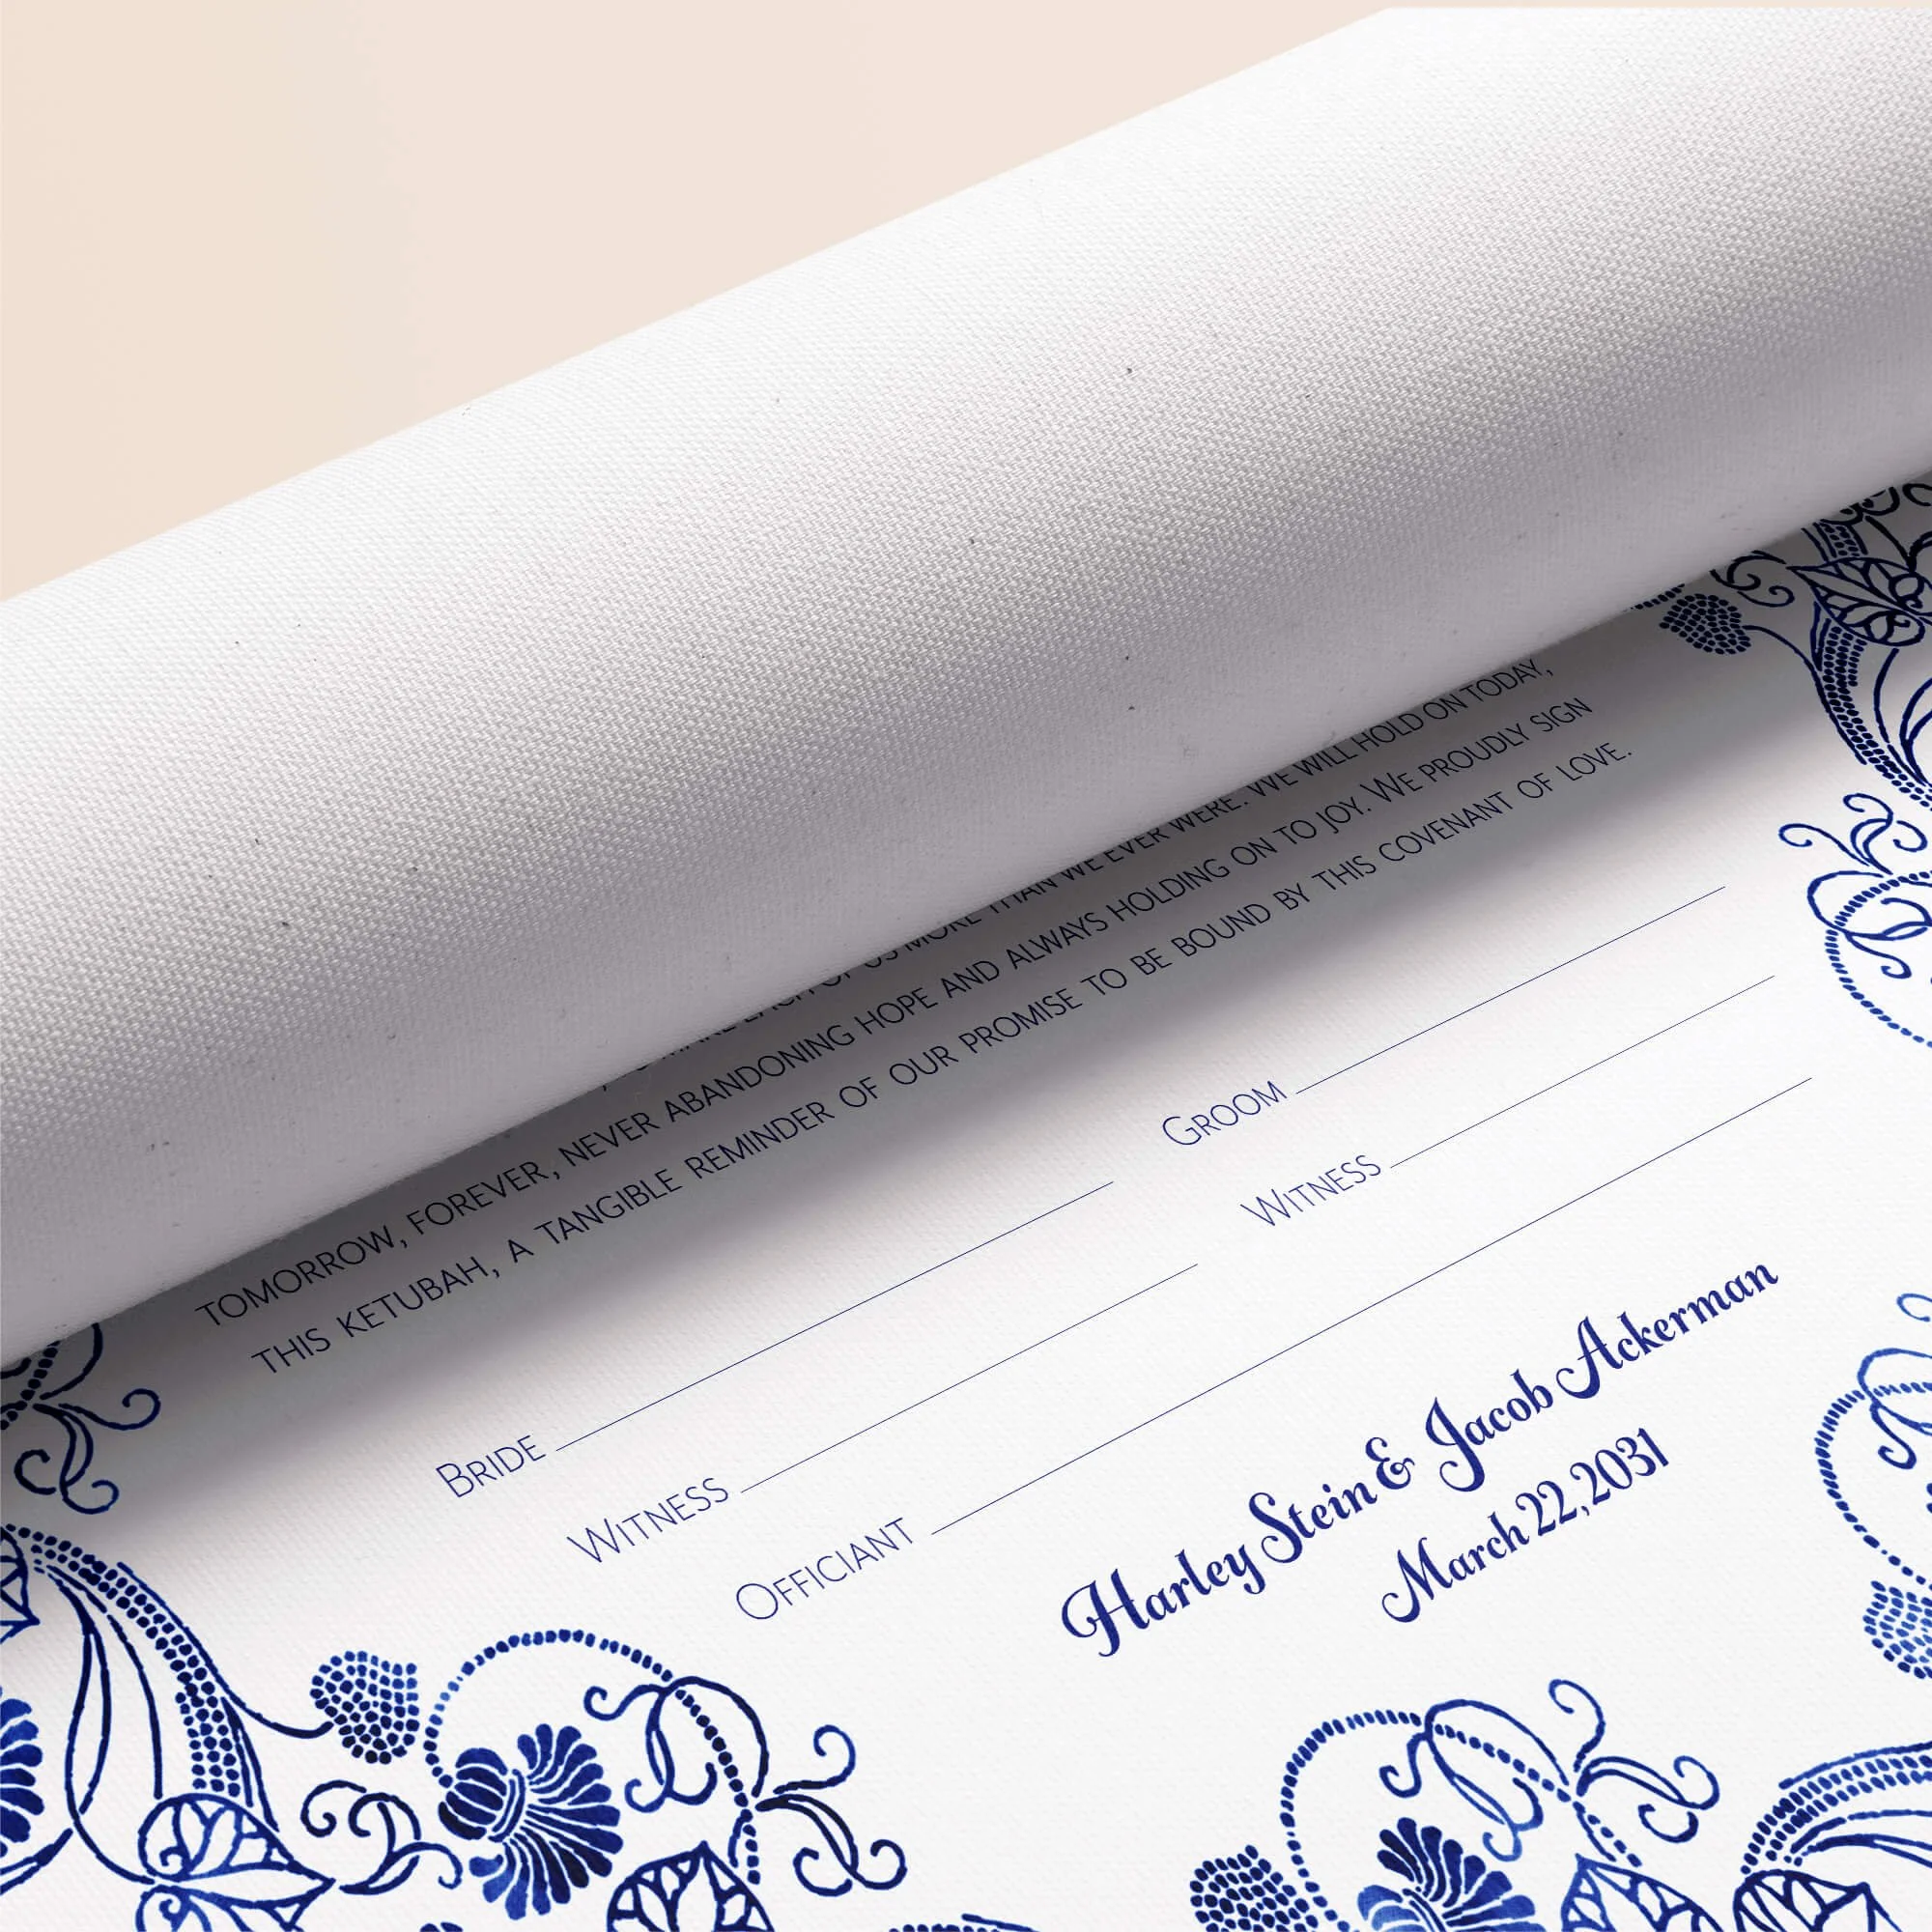 EACH OF US MORE THAN WE EVER WERE. WE WILL HOLD ON TODAY,
TOMORROW, FOREVER, NEVER ABANDONING HOPE AND ALWAYS HOLDING ON TO JOY. WE PROUDLY SIGN
THIS KETUBAH, A TANGIBLE REMINDER OF OUR PROMISE TO BE BOUND BY THIS COVENANT OF LOVE.
BRIDE GROOM
WITNESS WITNESS
OFFICIANT
Harley Stein & Jacob Ackerman
March 22, 2031